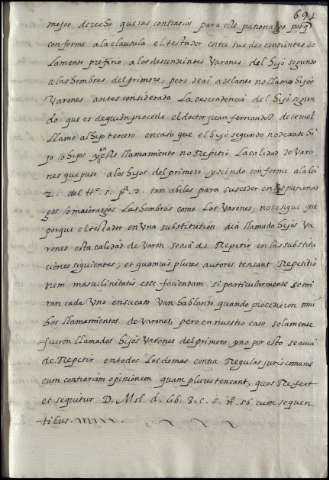 691
mejor derecho que sus contrarios para este patronazgo porq
conforme a la clausula el testador entre sus descendientes so
lamente prefirio a los descendientes Varones del hijo segundo
a las hembras del primero, pero de ai adelante no llamo hijos
Varones antes considerada La descendencia del hijo segun
do que es de quien procede el doctor juan fernandez de
llamo al hijo tercero en caso que el hijo segundo no dexase hi
jo o hija llamamiento no Repetio La calidad de varo
nes que puso a los hijos del primero y siendo conforme a la lei
2. del tt. 5. pa. 2. tan abiles para suceder en los patronaz
gos o maiorazgos las hembras como los Varones, no es que
porque el testador en una substitution aia llamado hijos Va
rones esta calidad de varon se aia de Repetir en las substitu
ciones siguientes, et quamuis plures autores teneant Repetitio
nem masculinitatis esse faciendam si particularmente se mi
ran cada uno en su caso Van hablando quando precedieron mu
chos llamamientos de varones, pero en nuestro caso solamente
fueron llamados hijos Varones del primero, y no por esto se aia
de Repetir en todos los demas contra Regulas juris comunis
cum contrariam opinionem quam plures teneant, quos Refert
et sequitur D. Mol. d. lib. 3. c. 5. n. 56. cum sequen
tibus.